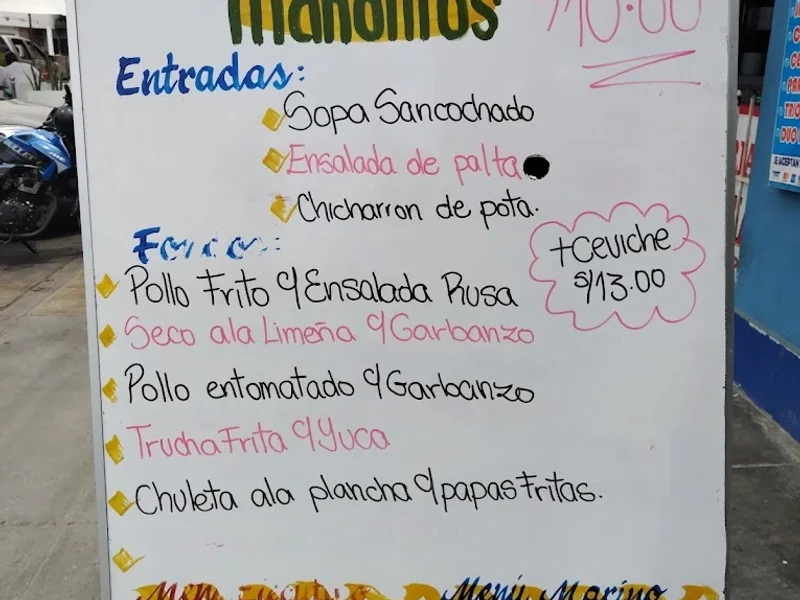 Manolitos
10.00
Entradas:
Sopa Sancochado
Ensalada de palta
Chicharron de pota.
Fondos:
+Ceviche
S/13.00
Pollo Frito c/ Ensalada Rusa
Seco ala Limeña c/ Garbanzo
Pollo entomatado c/ Garbanzo
Trucha Frita c/ Yuca
Chuleta ala plancha c/ papas Fritas.
Menú Marino